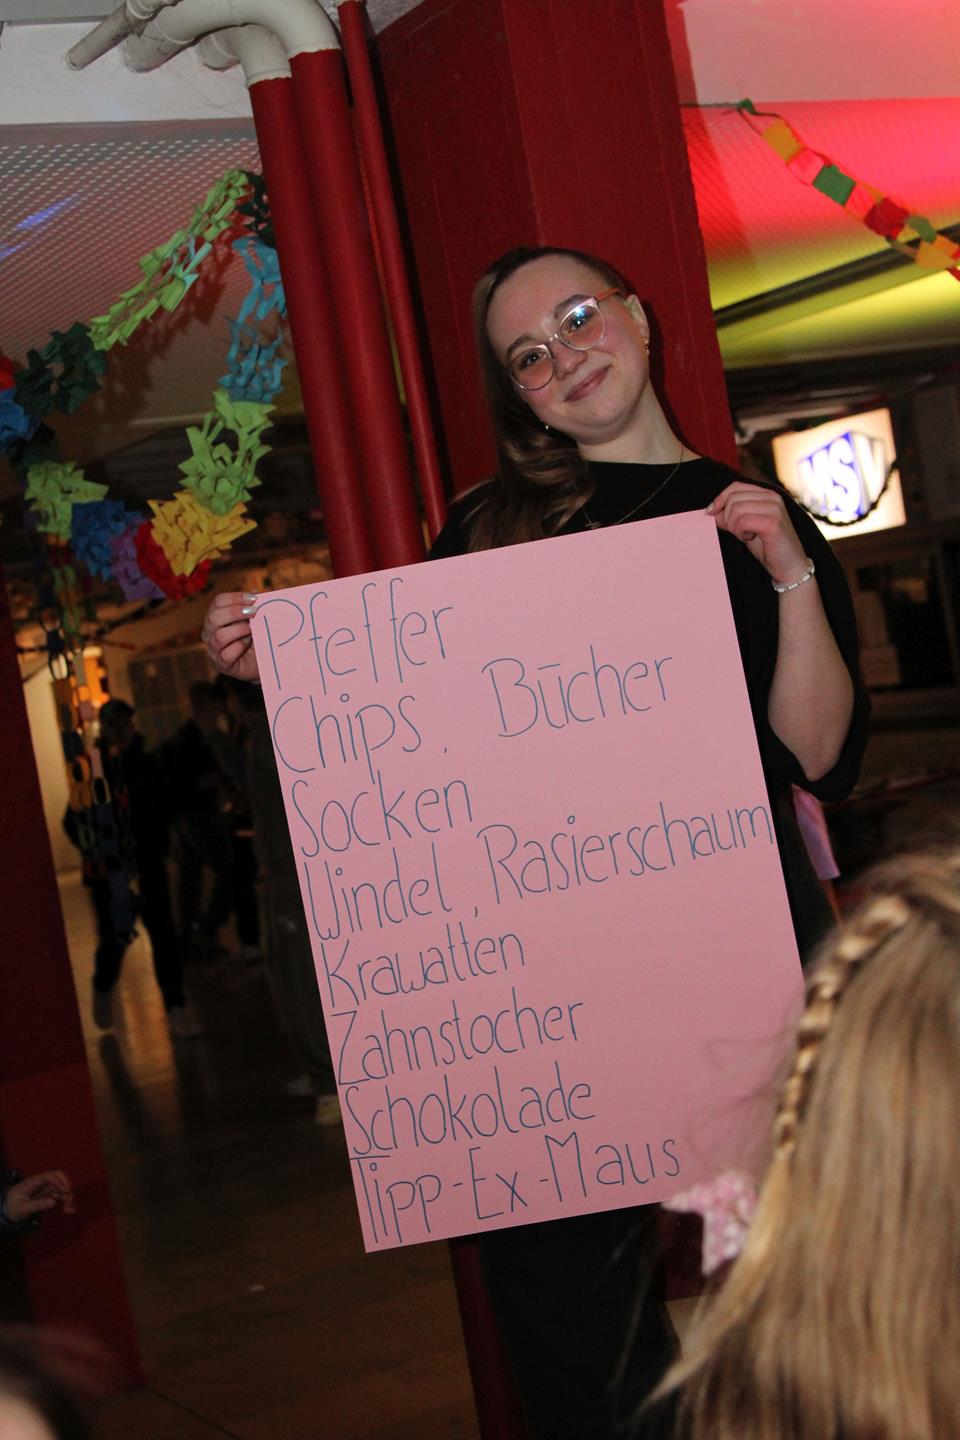 MSV
Pfeffer
Chips, Bücher
Socken
Windel, Rasierschaum
Krawatten
Zahnstocher
Schokolade
Tipp-Ex-Maus